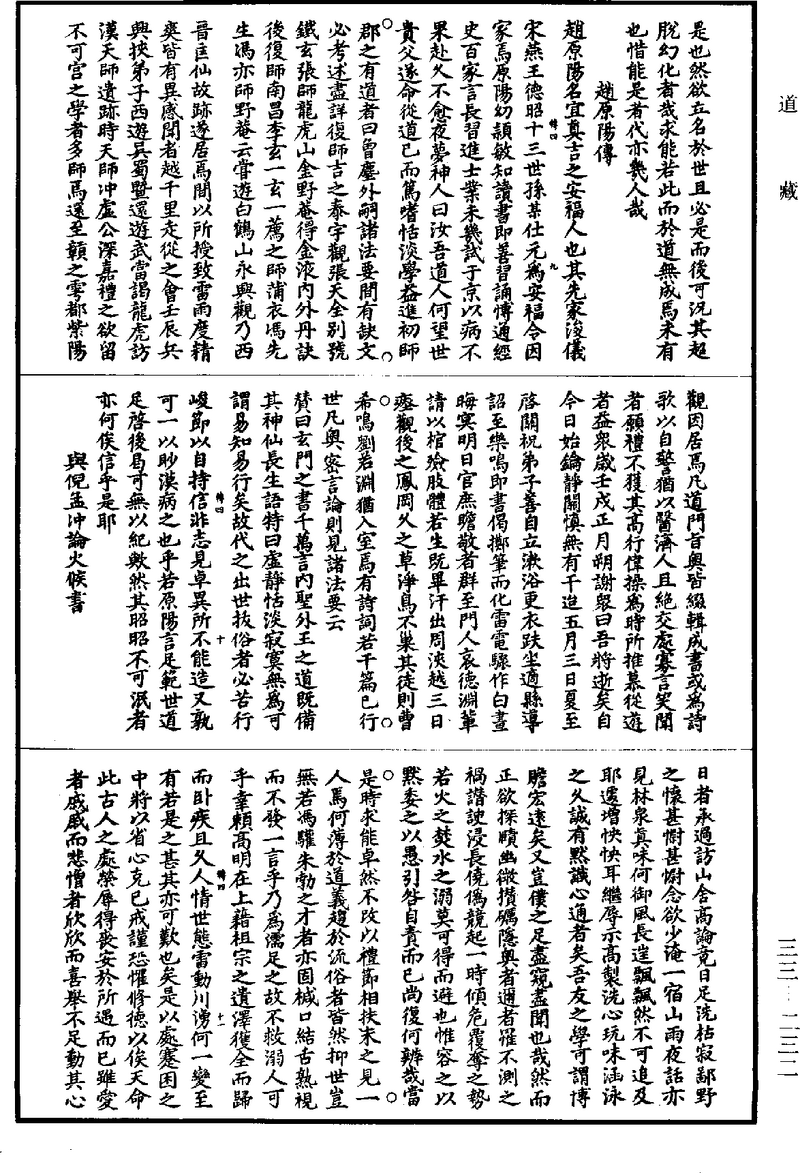 道藏
三三—二三二
是也然欲立名於世且必是而後可況其超
脫幻化者哉求能若此而於道無成焉未有
也惜能是者代亦幾人哉
趙原陽傳
趙原陽名宜真吉之安福人也其先家浚儀
宋燕王德昭十三世孫某仕元為安福令因
家焉原陽幼穎敏知讀書即善習誦博通經
史百家言長習進士業未幾試于京以病不
果赴久不愈夜夢神人曰汝吾道人何望世
貴父遂命從道已而篤嗜恬淡學益進初師
郡之有道者曰曾塵外嗣諸法要間有缺文
必考述盡詳復師吉之泰宇觀張天全別號
鐵玄張師龍虎山金野菴得金液內外丹訣
後復師南昌李玄一玄一薦之師蒲衣馮先
生馮亦師野菴云嘗遊白鶴山永興觀乃西
晉匡仙故跡遂居焉間以所授致雷雨度精
爽皆有異感聞者越千里走從之會壬辰兵
興挾弟子西遊吳蜀暨還遊武當謁龍虎訪
漢天師遺跡時天師冲虛公深嘉禮之欲留
不可宮之學者多師焉還至贛之雩都紫陽
觀因居焉凡道門旨奧皆綴輯成書或為詩
歌以自警猶以醫濟人且絕交處寡言笑聞
者願禮不獲其高行偉操為時所推慕從遊
者益眾歲壬戌正月朔謝眾曰吾將逝矣自
今日始鑰靜關慎無有干造五月三日夏至
啓關祝弟子善自立漱浴更衣趺坐適縣導
詔至樂鳴即書偈擲筆而化雷電驟作白晝
晦冥明日官庶瞻敬者群至門人哀德淵輩
請以棺殮肢體若生既畢汗出周浹越三日
瘞觀後之鳳岡久之草淨鳥不巢其徒則曹
希鳴劉若淵猶入室焉有詩詞若干篇已行
世凡奧密言論則見諸法要云
贊曰玄門之書千萬言內聖外王之道既備
其神仙長生語特曰虛靜恬淡寂寞無為可
謂易知易行矣故代之出世拔俗者必苦行
峻節以自持信非志見卓異所不能造又孰
可一以眇漠病之也乎若原陽言足範世道
足啓後曷可無以紀歟然其昭昭不可泯者
亦何俟信乎是耶
與倪孟沖論火候書
日者承過訪山舍高論竟日足洗枯寂鄙野
之懷甚慰甚慰念欲少淹一宿山雨夜話亦
見林泉真味何御風長逕飄飄然不可追及
耶邊增怏怏耳繼辱示高製洗心玩味涵泳
之久誠有默識心通者矣吾友之學可謂博
贍宏遠矣又豈僕之足盡窺盡聞也哉然而
正欲探賾幽微攢礪隱奧者邇者罹不測之
禍譖諛浸長僥偽競起一時傾危覆奪之勢
若火之焚水之溺莫可得而避也惟容之以
默委之以愚引咎自責而已尚復何辨哉當
是時求能卓然不改以禮節相扶末之見一
人焉何薄於道義趨於流俗者皆然抑世豈
無若馮驩朱勃之才者亦固緘口結舌熟視
而不發一言乎乃為儒足之故不救溺人可
乎幸賴高明在上藉祖宗之遺澤獲全而歸
而臥疾且久人情世態雷動川湧何一變至
有若是之甚其亦可歎也矣是以處蹇困之
中將以省心克己戒謹恐懼修德以俟天命
此古人之處榮辱得喪安於所遇而已雖愛
者戚戚而悲憎者欣欣而喜舉不足動其心